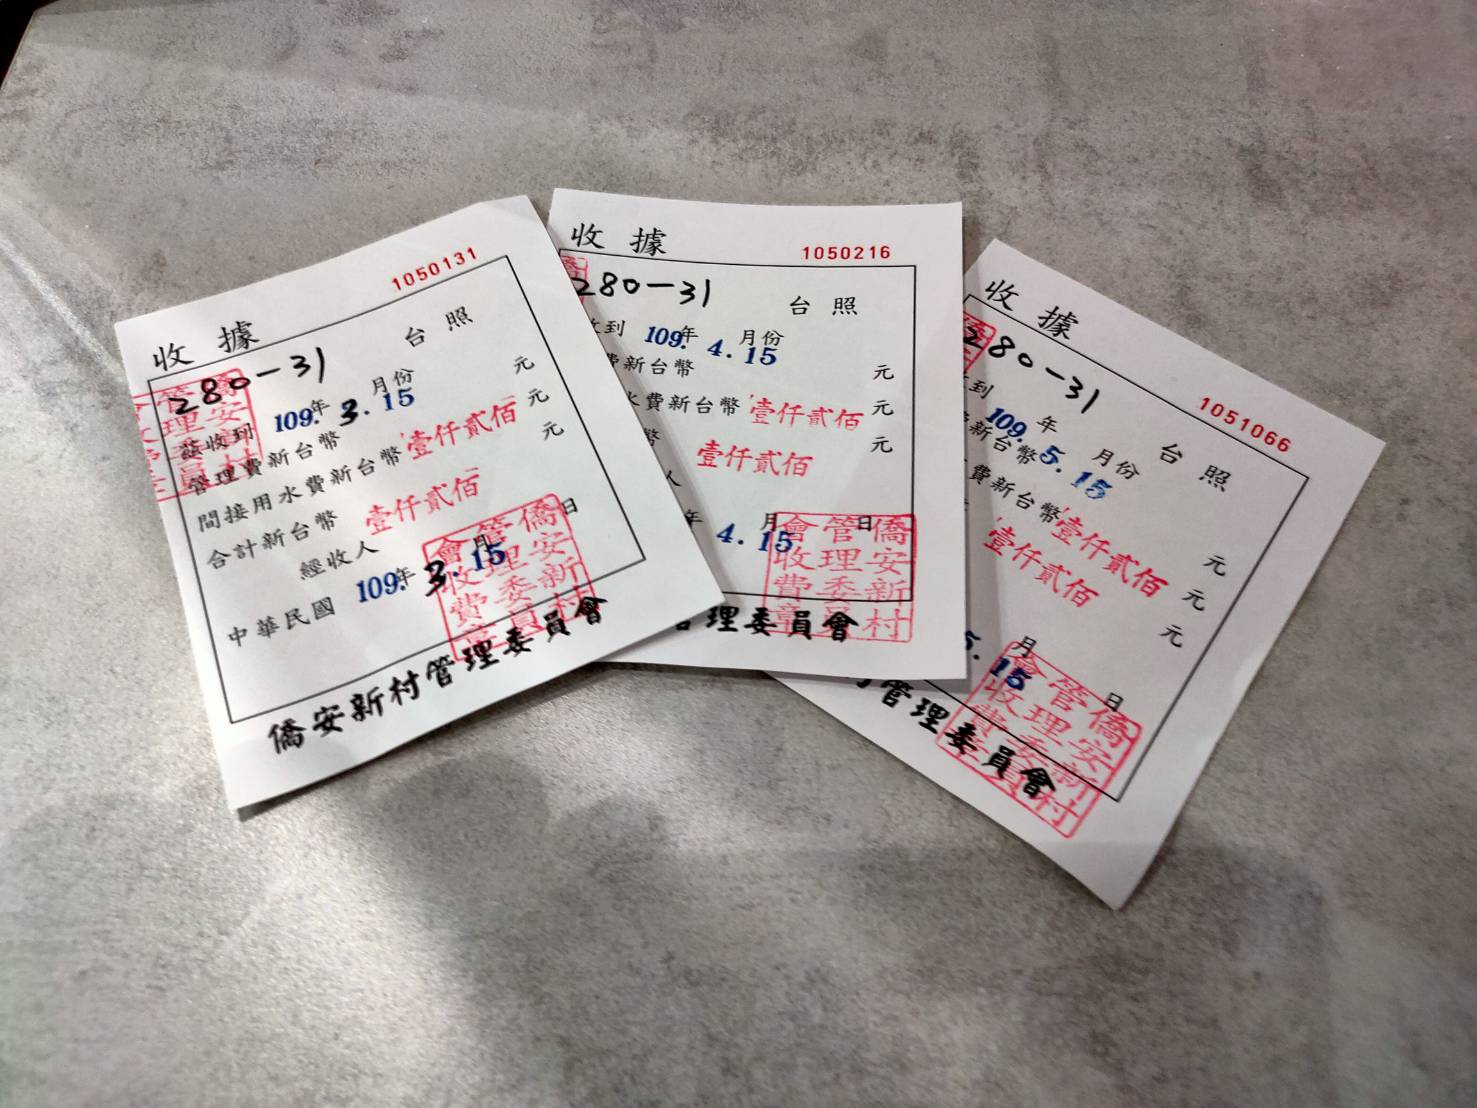 收據
1050131
280-31
台照
茲收到 109.年 3.15 月份
管理費新台幣 元
間接用水費新台幣 壹仟貳佰 元
合計新台幣 壹仟貳佰 元
經收人
中華民國 109.年 3.15 月 日
僑安新村管理委員會
僑安新村管理委員會收費章
收據
1050216
280-31
台照
收到 109.年 4.15 月份
費新台幣 元
水費新台幣 壹仟貳佰 元
幣 壹仟貳佰 元
人
年 4.15 月 日
管理委員會
僑安新村管理委員會收費章
收據
1051066
280-31
台照
到 109.年 5.15 月份
新台幣 元
費新台幣 壹仟貳佰 元
壹仟貳佰 元
5.15 月 日
村管理委員會
僑安新村管理委員會收費章